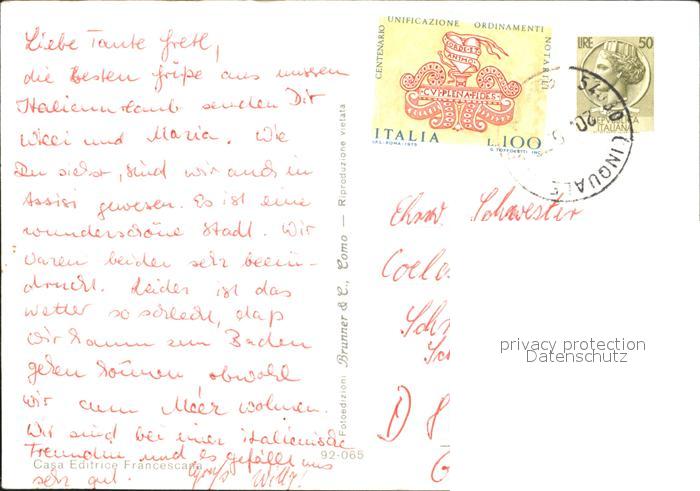 Liebe Tante Gretl,
die besten Grüße aus unserem
Italienurlaub senden Dir
Willi und Maria. Wie
Du siehst, sind wir auch in
Assisi gewesen. Es ist eine
wunderschöne Stadt. Wir
waren beide sehr beein-
druckt. Leider ist das
Wetter so schlecht, daß
wir kaum zum Baden
gehen können obwohl
wir am Meer wohnen.
Wir sind bei einer italienische
Freundin und es gefällt uns
sehr gut. Gruß Willy!
Casa Editrice Francescana
92-065
Fotoedizioni Brunner & C., Como — Riproduzione vietata
CENTENARIO UNIFICAZIONE ORDINAMENTI NOTARILI
CVI PLENA FIDES
ITALIA L.100
I.P.S.-ROMA-1975
LIRE 50
REPVBBLICA
ITALIANA
LINGUAL
Ehrw. Schwester
Coele
Sch
D 8
privacy protection
Datenschutz